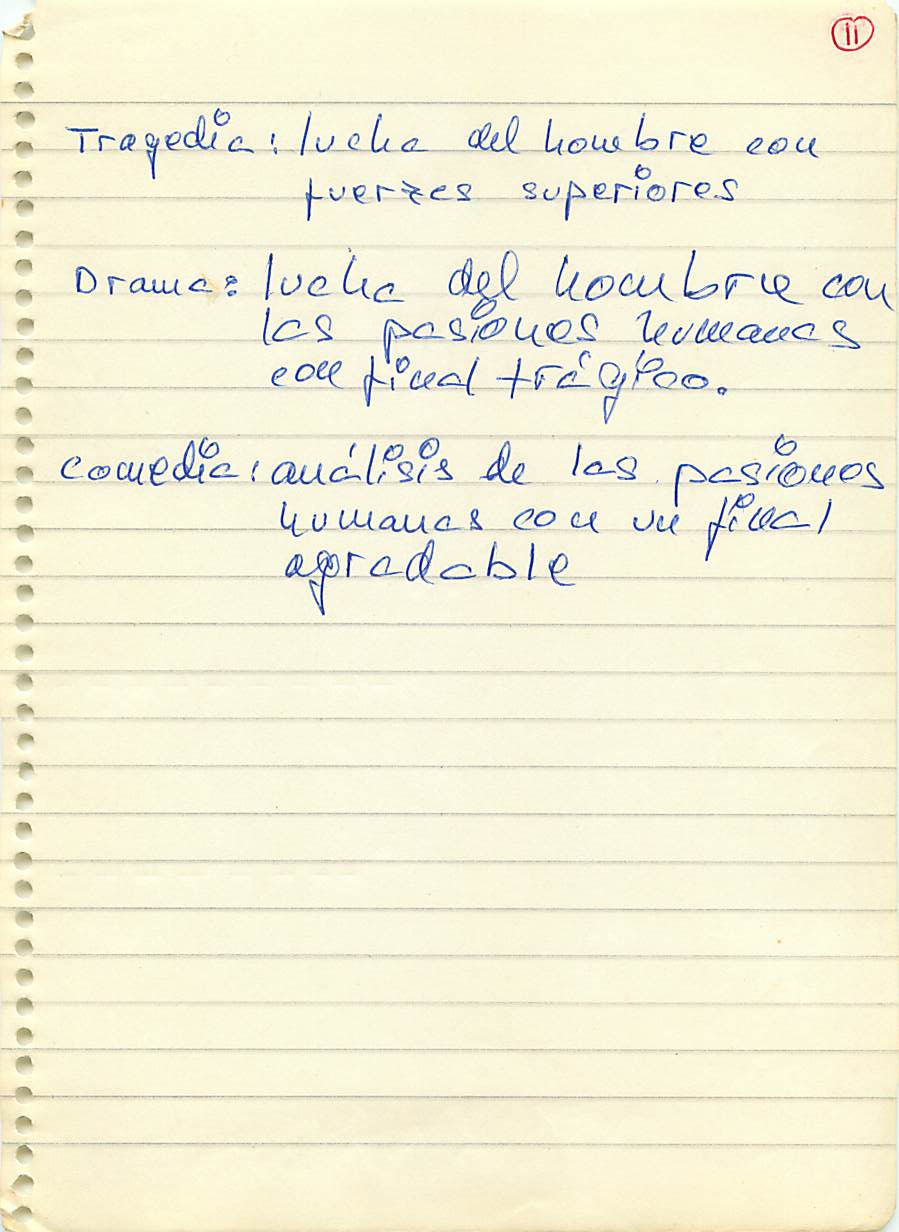 11
Tragedia: lucha del hombre con
fuerzas superiores
Drama: lucha del hombre con
las pasiones humanas
con final trágico.
Comedia: análisis de las pasiones
humanas con un final
agradable